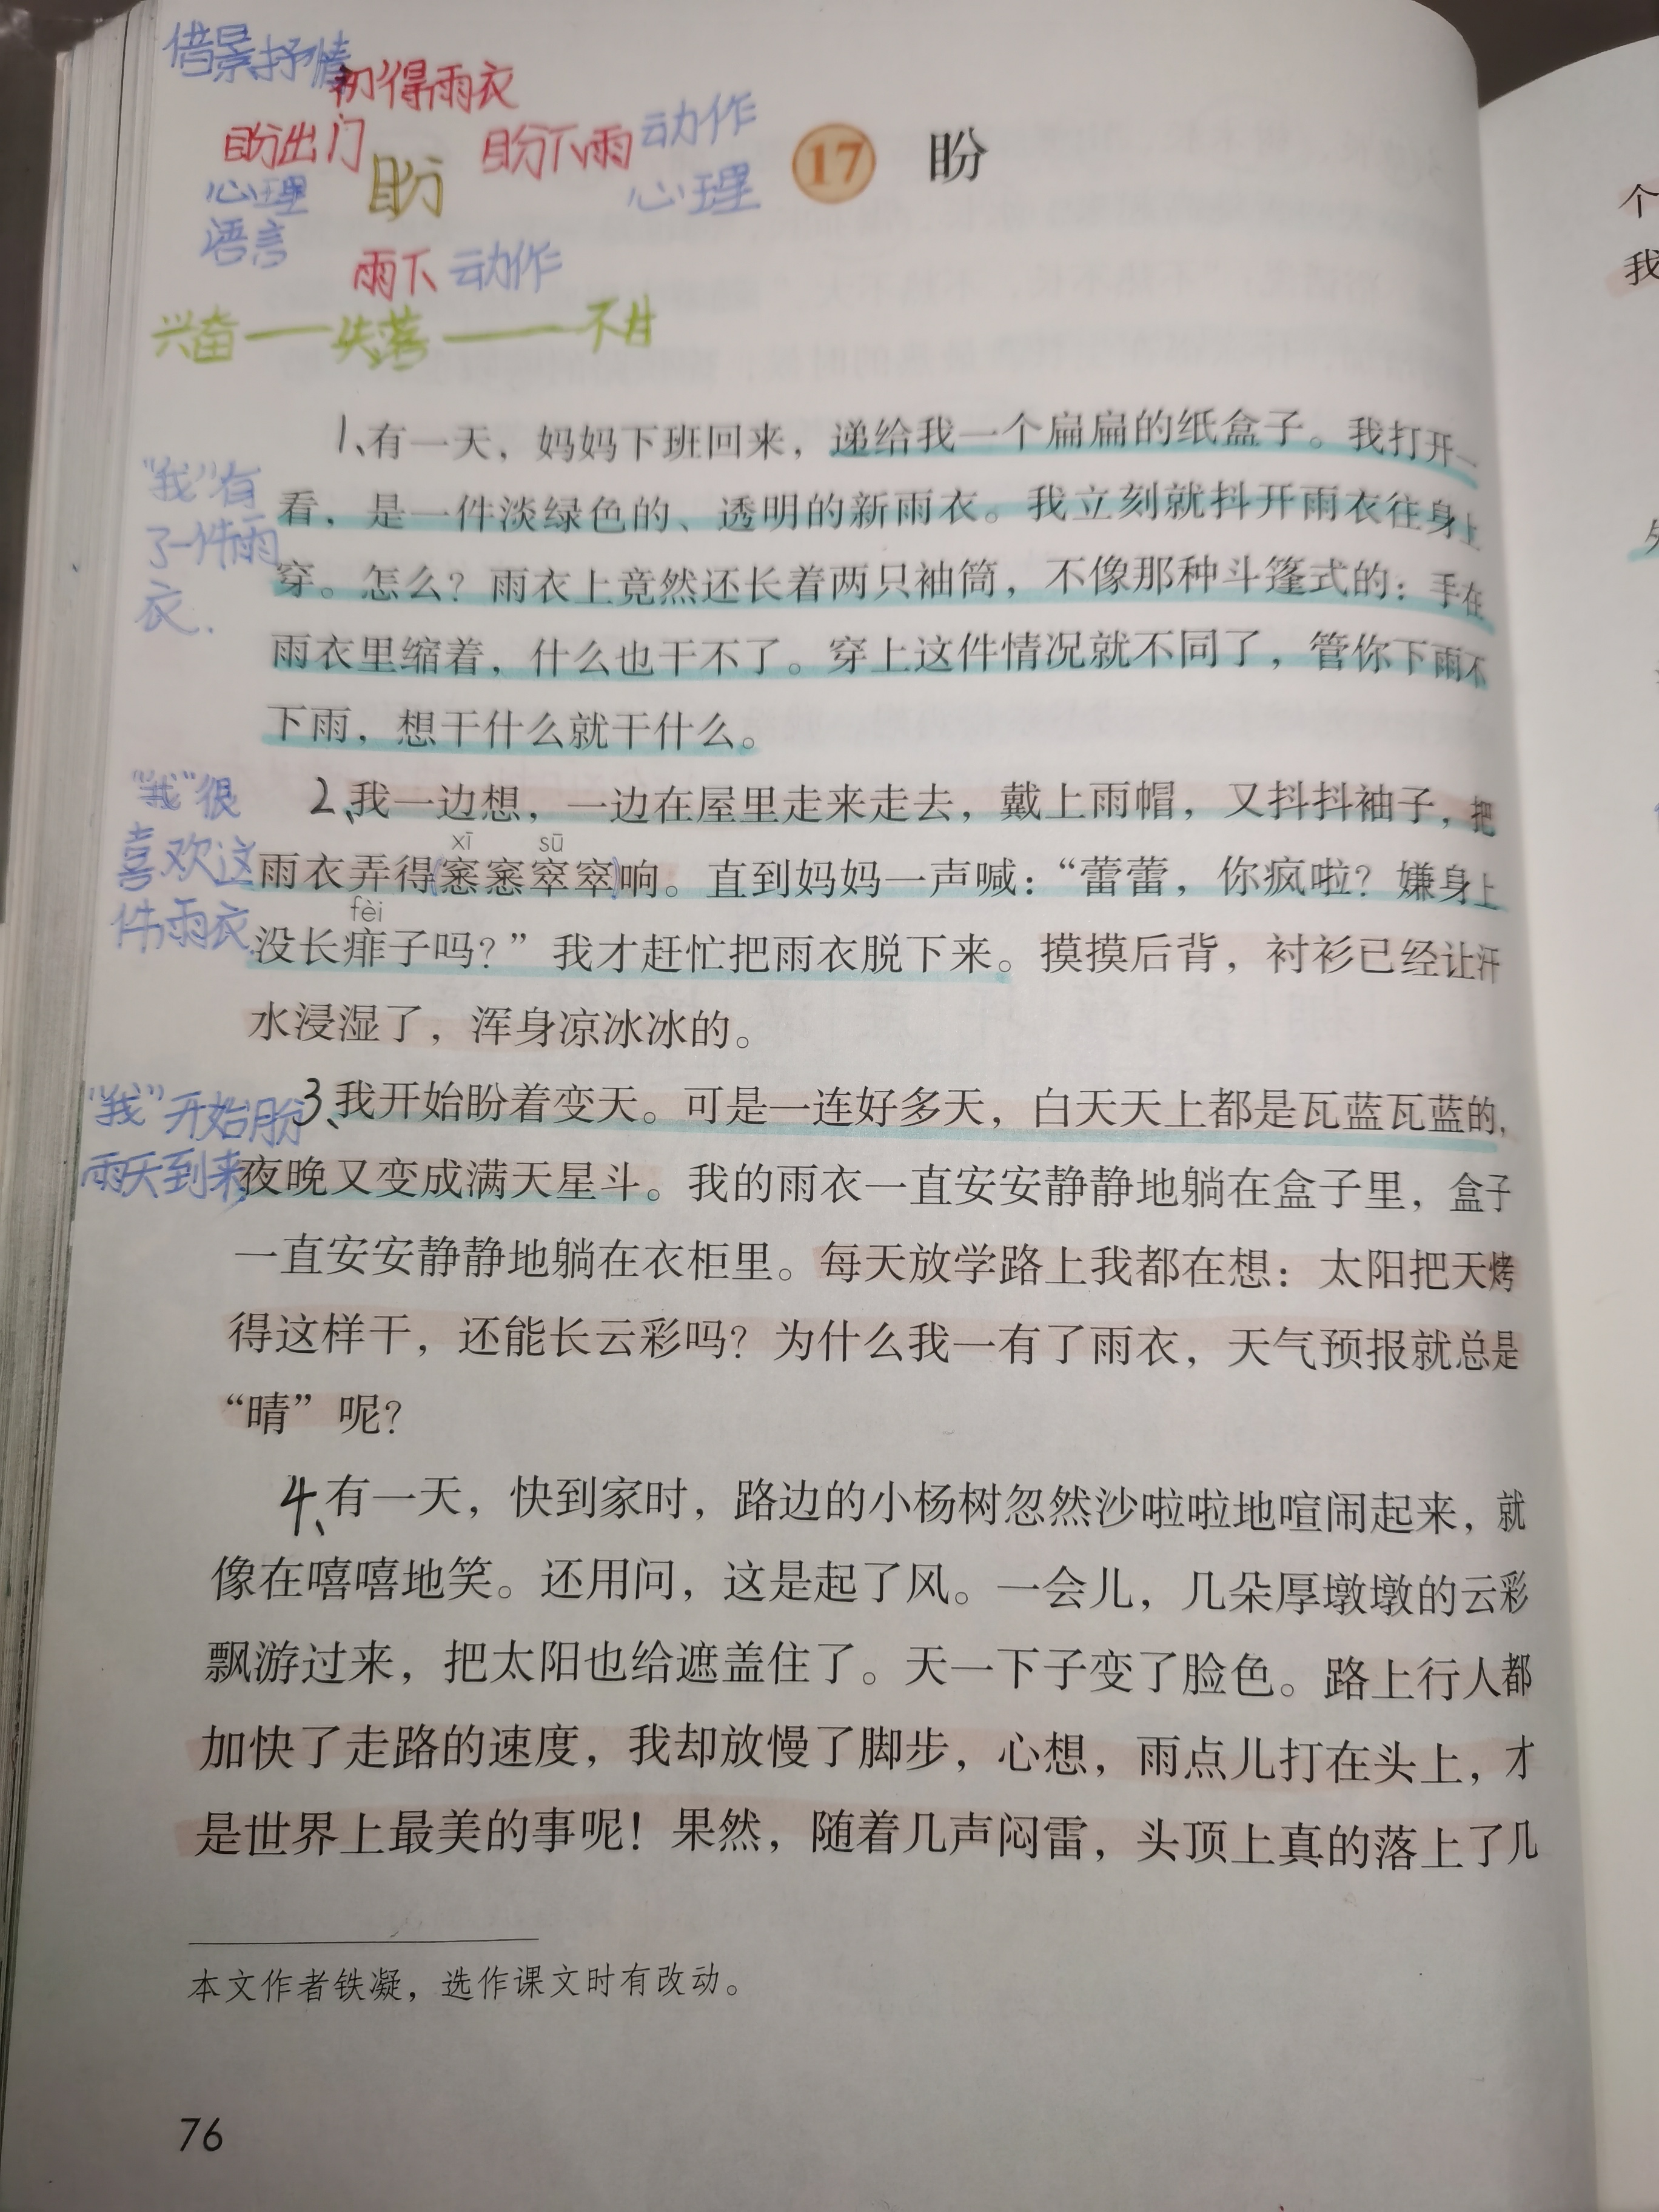 借景抒情
初得雨衣
盼出门 盼 盼下雨 动作
心理 心理
语言
雨下 动作
兴奋——失落——不甘
17 盼
1、有一天，妈妈下班回来，递给我一个扁扁的纸盒子。我打开一
看，是一件淡绿色的、透明的新雨衣。我立刻就抖开雨衣往身上
穿。怎么？雨衣上竟然还长着两只袖筒，不像那种斗篷式的：手在
雨衣里缩着，什么也干不了。穿上这件情况就不同了，管你下雨不
下雨，想干什么就干什么。
“我”有
了一件雨
衣.
2、我一边想，一边在屋里走来走去，戴上雨帽，又抖抖袖子，把
xī sū
雨衣弄得(窸窸窣窣)响。直到妈妈一声喊：“蕾蕾，你疯啦？嫌身上
fèi
没长痱子吗？”我才赶忙把雨衣脱下来。摸摸后背，衬衫已经让汗
水浸湿了，浑身凉冰冰的。
“我”很
喜欢这
件雨衣.
3、我开始盼着变天。可是一连好多天，白天天上都是瓦蓝瓦蓝的，
夜晚又变成满天星斗。我的雨衣一直安安静静地躺在盒子里，盒子
一直安安静静地躺在衣柜里。每天放学路上我都在想：太阳把天烤
得这样干，还能长云彩吗？为什么我一有了雨衣，天气预报就总是
“晴”呢？
“我”开始盼
雨天到来
4、有一天，快到家时，路边的小杨树忽然沙啦啦地喧闹起来，就
像在嘻嘻地笑。还用问，这是起了风。一会儿，几朵厚墩墩的云彩
飘游过来，把太阳也给遮盖住了。天一下子变了脸色。路上行人都
加快了走路的速度，我却放慢了脚步，心想，雨点儿打在头上，才
是世界上最美的事呢！果然，随着几声闷雷，头顶上真的落上了几
本文作者铁凝，选作课文时有改动。
76
个
我